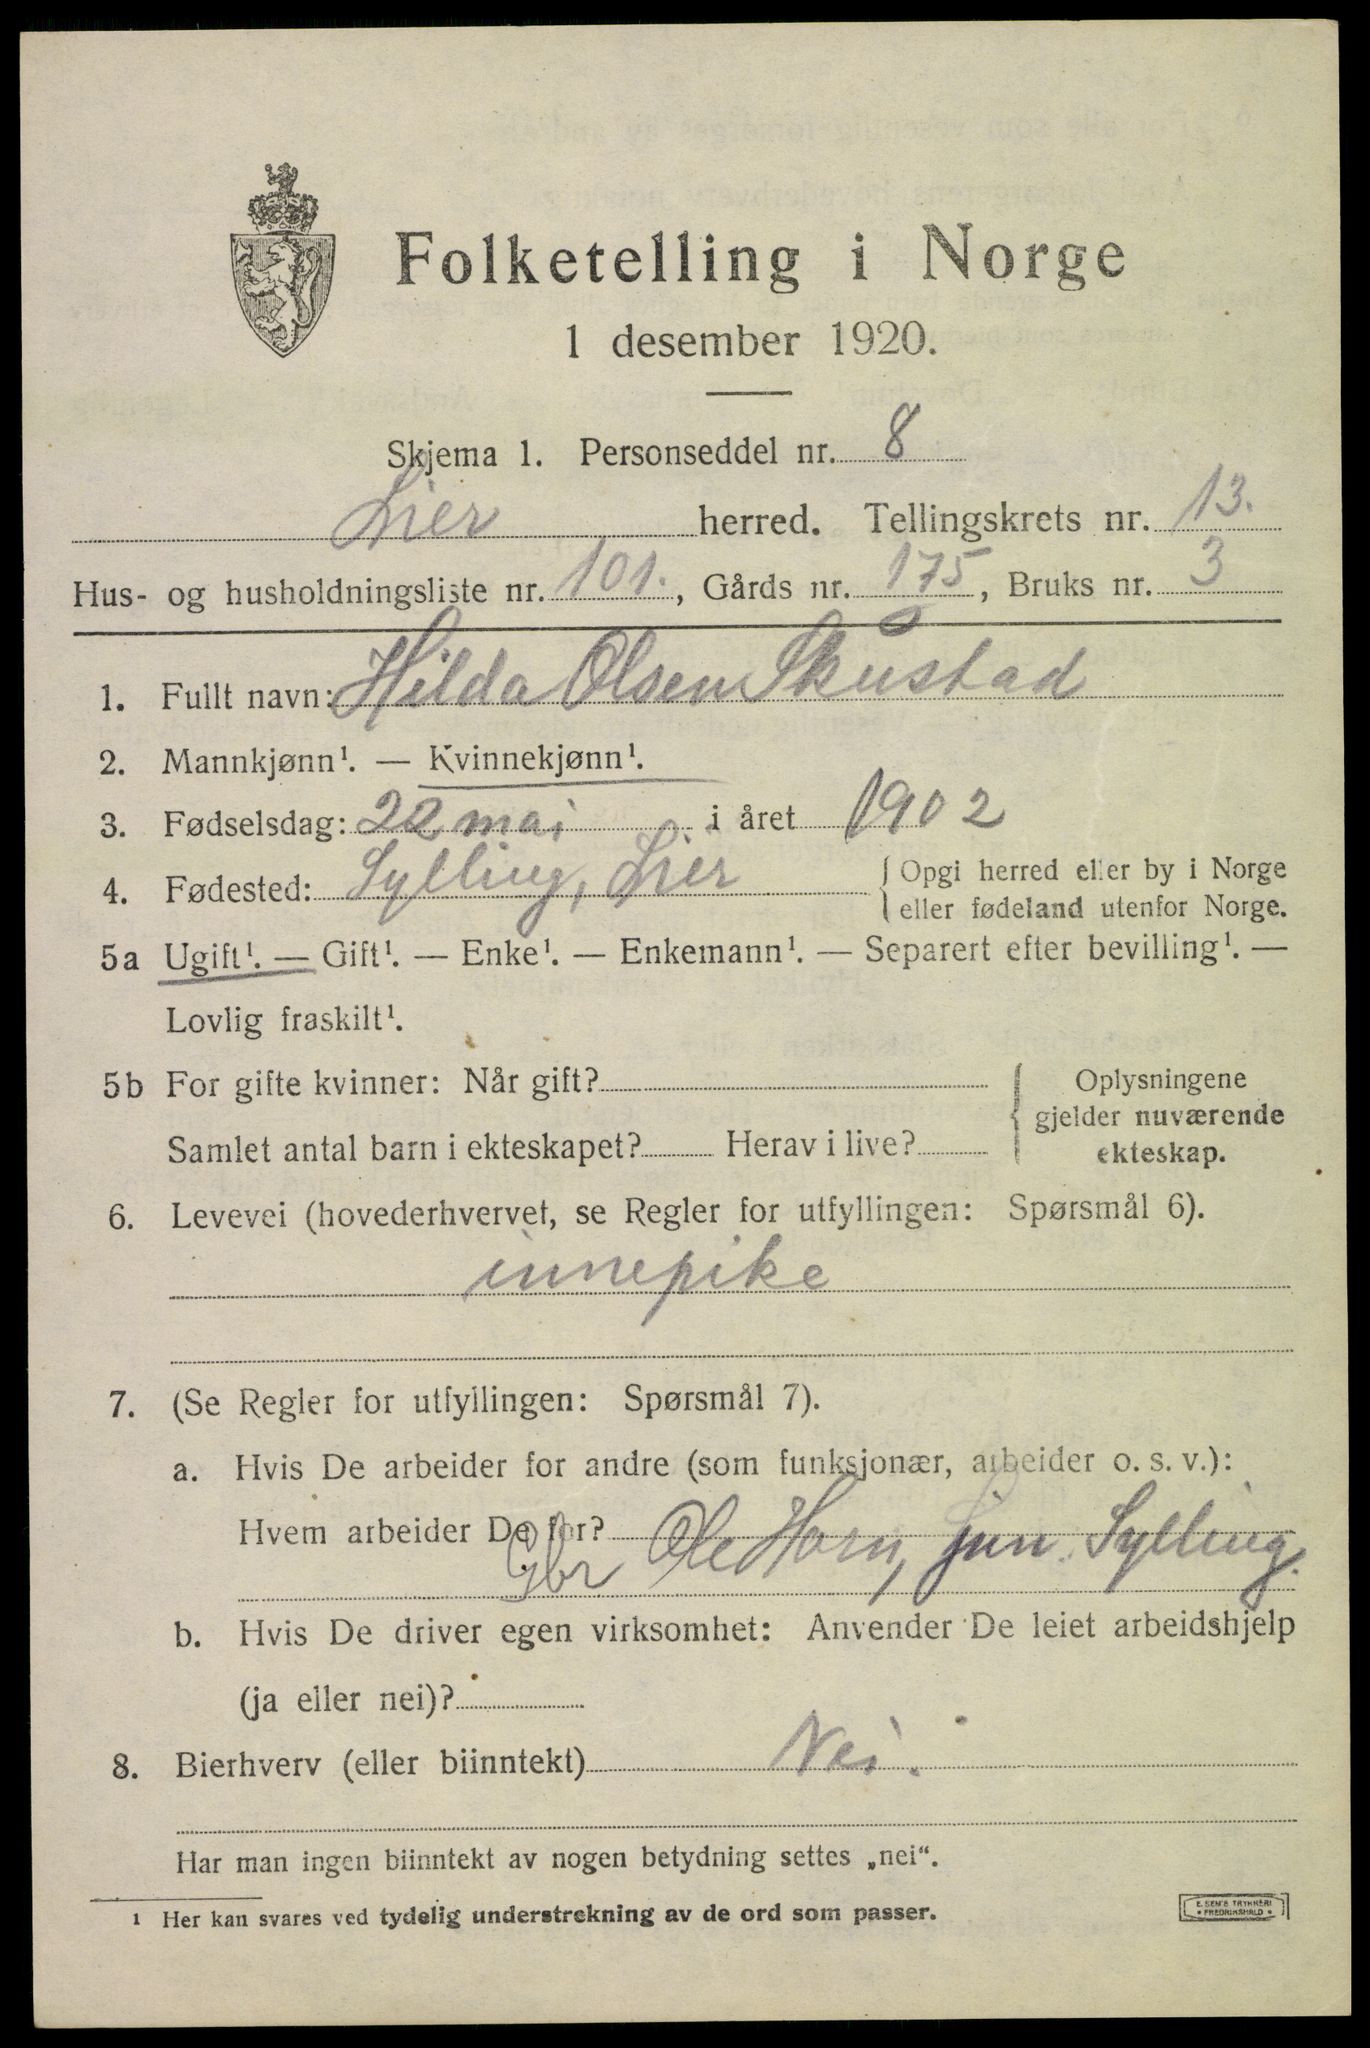 Folketelling i Norge
1 desember 1920.
Skjema 1. Personseddel nr. 8
Lier herred. Tellingskrets nr. 13.
Hus- og husholdningsliste nr. 101., Gårds nr. 175, Bruks nr. 3
1. Fullt navn: Hilda Olsen Skustad
2. Mannkjønn¹. — Kvinnekjønn¹.
3. Fødselsdag: 22 mai i året 1902
4. Fødested: Sylling, Lier { Opgi herred eller by i Norge
eller fødeland utenfor Norge.
5a Ugift¹. — Gift¹. — Enke¹. — Enkemann¹. — Separert efter bevilling¹. —
Lovlig fraskilt¹.
5b For gifte kvinner: Når gift? { Oplysningene
gjelder nuværende
Samlet antal barn i ekteskapet? Herav i live? ekteskap.
6. Levevei (hovederhvervet, se Regler for utfyllingen: Spørsmål 6).
innepike
7. (Se Regler for utfyllingen: Spørsmål 7).
a. Hvis De arbeider for andre (som funksjonær, arbeider o. s. v.):
Hvem arbeider De for?
Gbr Ole Horn, jun. Sylling.
b. Hvis De driver egen virksomhet: Anvender De leiet arbeidshjelp
(ja eller nei)?
8. Bierhverv (eller biinntekt) Nei.
Har man ingen biinntekt av nogen betydning settes „nei“.
¹ Her kan svares ved tydelig understrekning av de ord som passer.
E. SEM'S TRYKKERI
• FREDRIKSHALD •